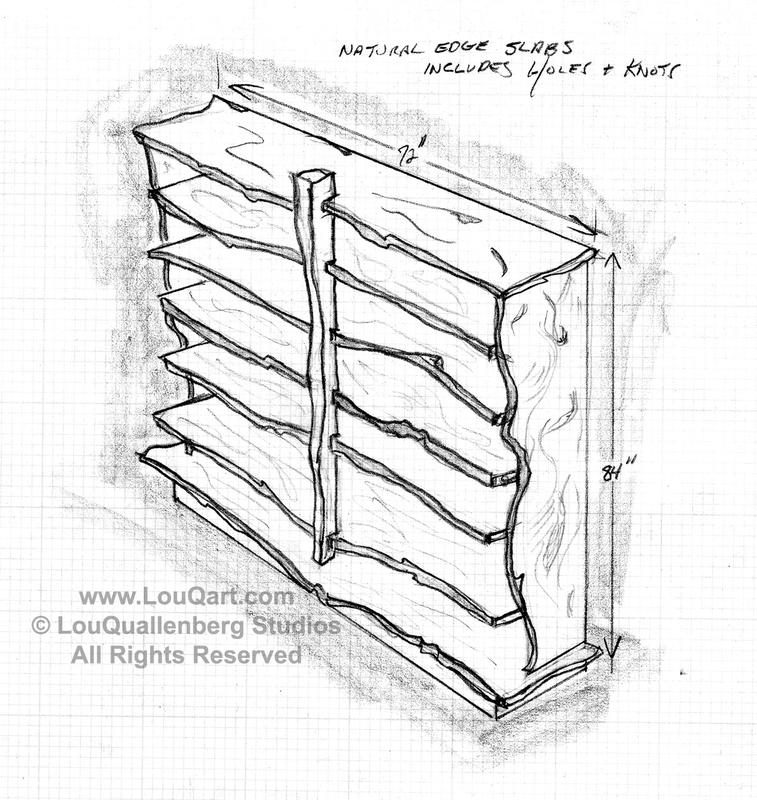 NATURAL EDGE SLABS
INCLUDES HOLES + KNOTS
72"
84"
www.LouQart.com
© LouQuallenberg Studios
All Rights Reserved